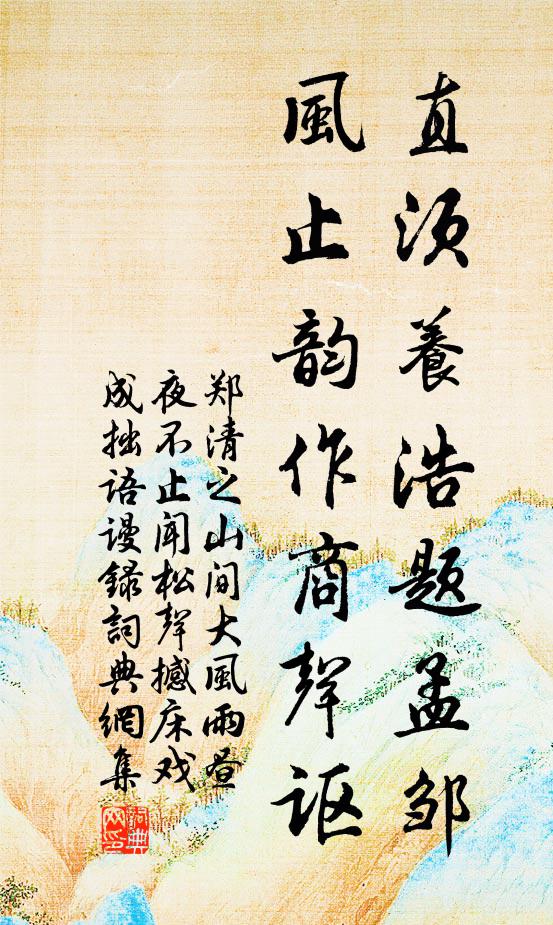 直须養浩题孟邹
風止韵作商聲讴
郑清之山间大风雨昼
夜不止闻松聲撼床戏
成拙语谩録詞典網集
詞典网印